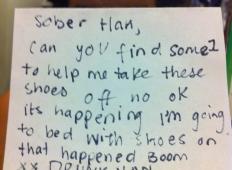 Sober Han,
Can you find some1
to help me take these
shoes off no ok
its happening im going
to bed with shoes on
that happened Boom
xx